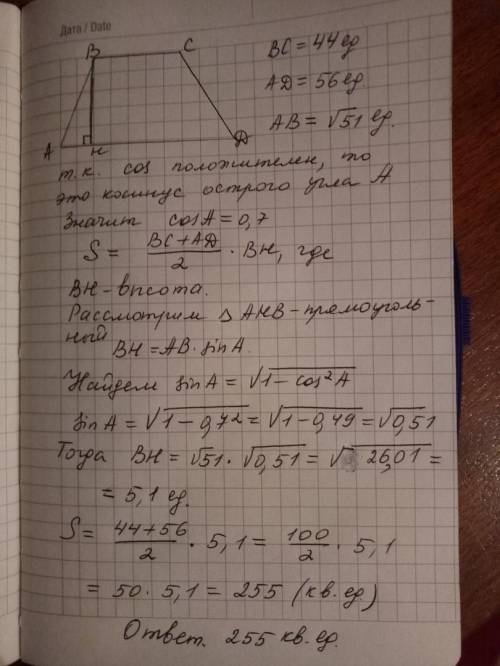 Дата / Date
B
C
A
H
D
BC = 44 ед
AD = 56 ед.
AB = √51 ед.
т.к. cos положителен, то
это косинус острого угла А
Значит cosA = 0,7
S = (BC + AD)/2 · BH, где
BH - высота.
Рассмотрим △ AHB - прямоуголь-
ный
BH = AB · sinA.
Найдем sinA = √(1 - cos²A)
sinA = √(1 - 0,7²) = √(1 - 0,49) = √0,51
Тогда BH = √51 · √0,51 = √26,01 =
= 5,1 ед.
S = (44 + 56)/2 · 5,1 = 100/2 · 5,1
= 50 · 5,1 = 255 (кв. ед)
Ответ. 255 кв. ед.